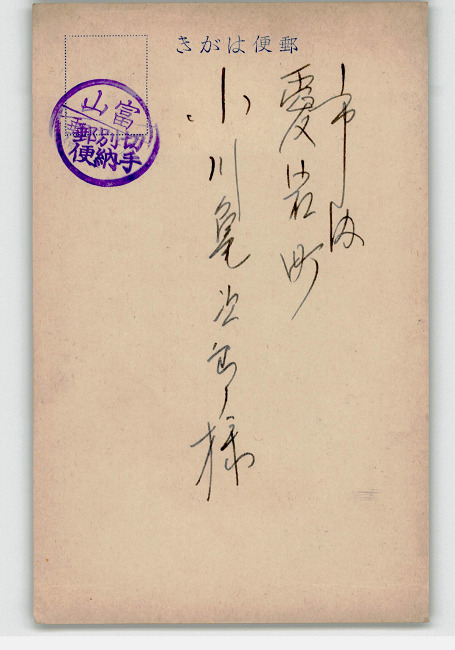 郵便はがき
富山
切手
別納
郵便
市内
愛宕町
小川亀次郎様